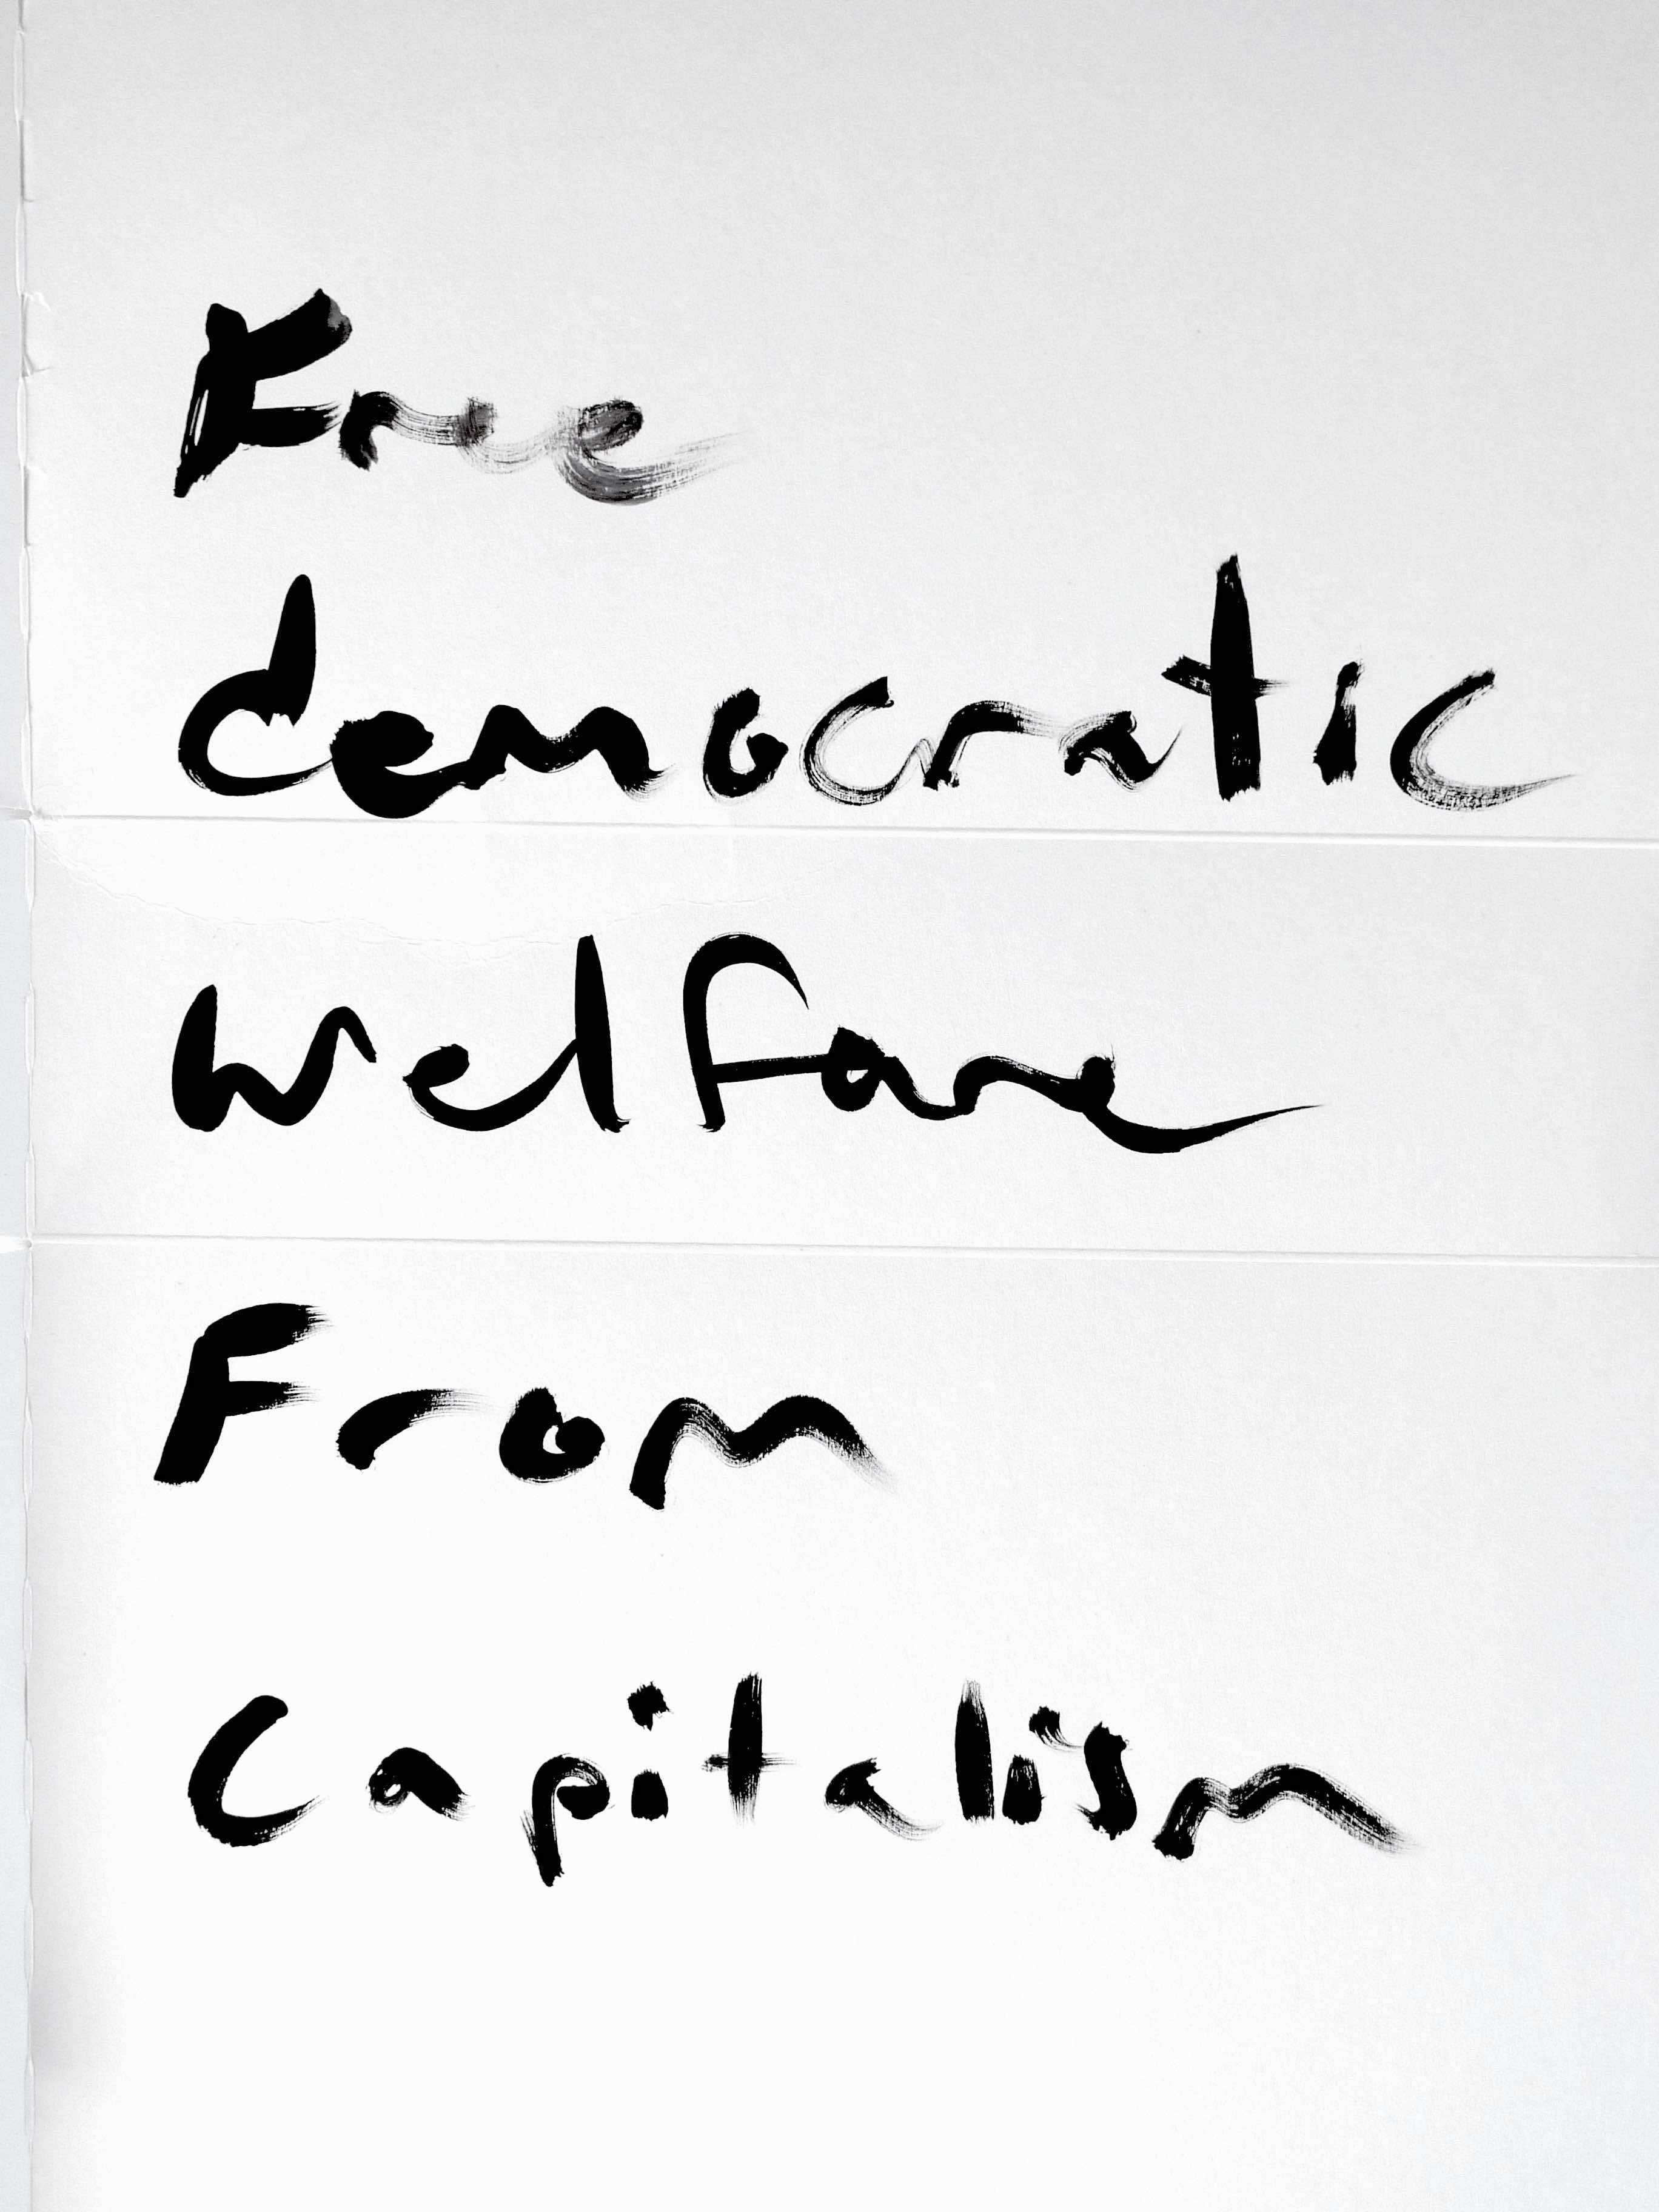 Free
democratic
Welfare
From
Capitalism